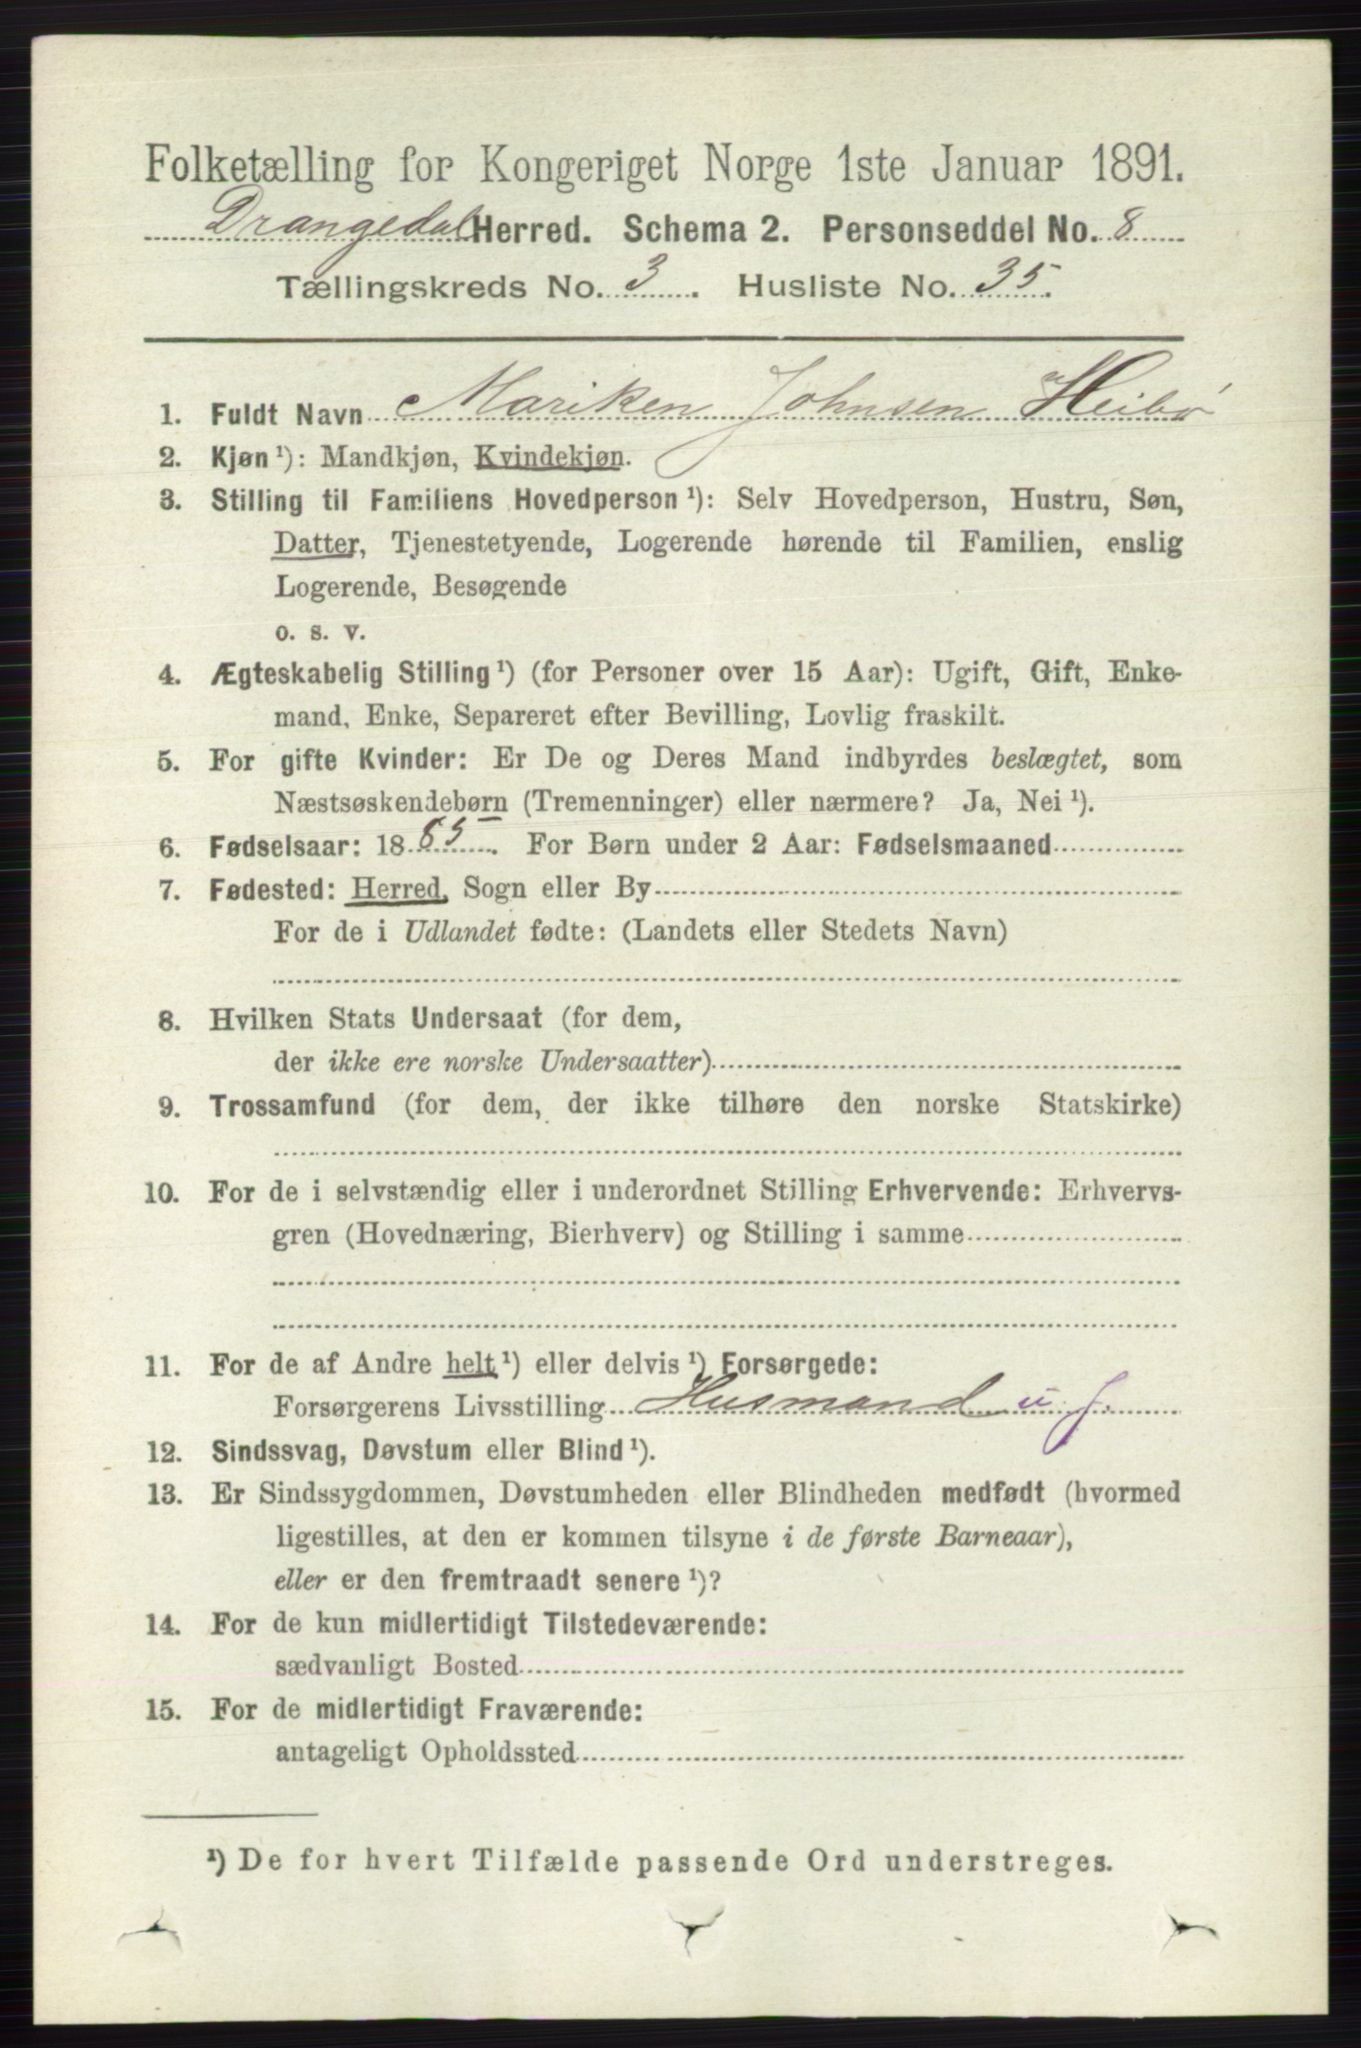 Folketælling for Kongeriget Norge 1ste Januar 1891.
Drangedal Herred. Schema 2. Personseddel No. 8
Tællingskreds No. 3. Husliste No. 35.
1. Fuldt Navn Mariken Johnsen Heibø
2. Kjøn ¹): Mandkjøn, Kvindekjøn.
3. Stilling til Familiens Hovedperson ¹): Selv Hovedperson, Hustru, Søn,
Datter, Tjenestetyende, Logerende hørende til Familien, enslig
Logerende, Besøgende
o. s. v.
4. Ægteskabelig Stilling ¹) (for Personer over 15 Aar): Ugift, Gift, Enke-
mand, Enke, Separeret efter Bevilling, Lovlig fraskilt.
5. For gifte Kvinder: Er De og Deres Mand indbyrdes beslægtet, som
Næstsøskendebørn (Tremenninger) eller nærmere? Ja, Nei ¹).
6. Fødselsaar: 1885. For Børn under 2 Aar: Fødselsmaaned
7. Fødested: Herred, Sogn eller By
For de i Udlandet fødte: (Landets eller Stedets Navn)
8. Hvilken Stats Undersaat (for dem,
der ikke ere norske Undersaatter)
9. Trossamfund (for dem, der ikke tilhøre den norske Statskirke)
10. For de i selvstændig eller i underordnet Stilling Erhvervende: Erhvervs-
gren (Hovednæring, Bierhverv) og Stilling i samme
11. For de af Andre helt ¹) eller delvis ¹) Forsørgede:
Forsørgerens Livsstilling Husmand u J.
12. Sindssvag, Døvstum eller Blind ¹).
13. Er Sindssygdommen, Døvstumheden eller Blindheden medfødt (hvormed
ligestilles, at den er kommen tilsyne i de første Barneaar),
eller er den fremtraadt senere ¹)?
14. For de kun midlertidigt Tilstedeværende:
sædvanligt Bosted
15. For de midlertidigt Fraværende:
antageligt Opholdssted
¹) De for hvert Tilfælde passende Ord understreges.